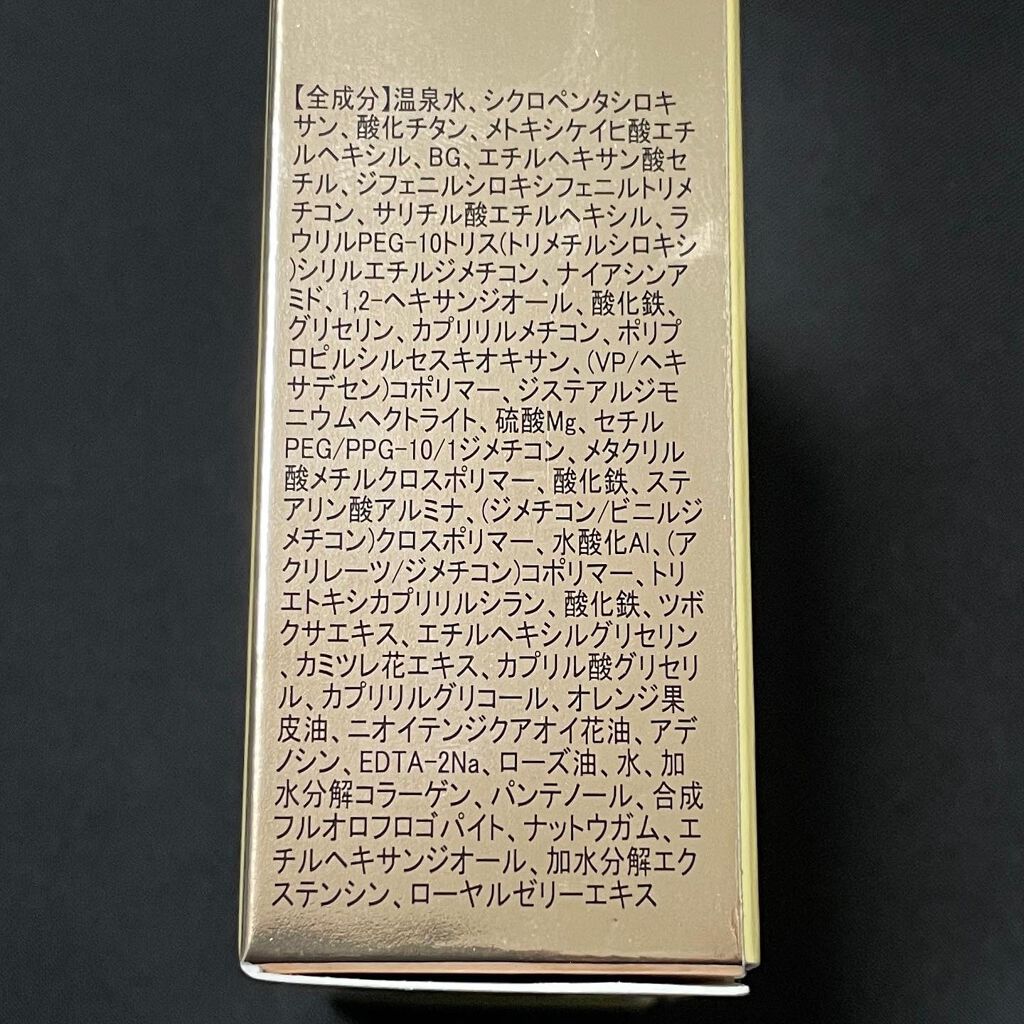 【全成分】温泉水、シクロペンタシロキ
サン、酸化チタン、メトキシケイヒ酸エチ
ルヘキシル、BG、エチルヘキサン酸セ
チル、ジフェニルシロキシフェニルトリメ
チコン、サリチル酸エチルヘキシル、ラ
ウリルPEG-10トリス(トリメチルシロキシ
)シリルエチルジメチコン、ナイアシンア
ミド、1,2-ヘキサンジオール、酸化鉄、
グリセリン、カプリリルメチコン、ポリプ
ロピルシルセスキオキサン、(VP/ヘキ
サデセン)コポリマー、ジステアルジモ
ニウムヘクトライト、硫酸Mg、セチル
PEG/PPG-10/1ジメチコン、メタクリル
酸メチルクロスポリマー、酸化鉄、ステ
アリン酸アルミナ、(ジメチコン/ビニルジ
メチコン)クロスポリマー、水酸化Al、(ア
クリレーツ/ジメチコン)コポリマー、トリ
エトキシカプリリルシラン、酸化鉄、ツボ
クサエキス、エチルヘキシルグリセリン
、カミツレ花エキス、カプリル酸グリセリ
ル、カプリリルグリコール、オレンジ果
皮油、ニオイテンジクアオイ花油、アデ
ノシン、EDTA-2Na、ローズ油、水、加
水分解コラーゲン、パンテノール、合成
フルオロフロゴパイト、ナットウガム、エ
チルヘキサンジオール、加水分解エク
ステンシン、ローヤルゼリーエキス